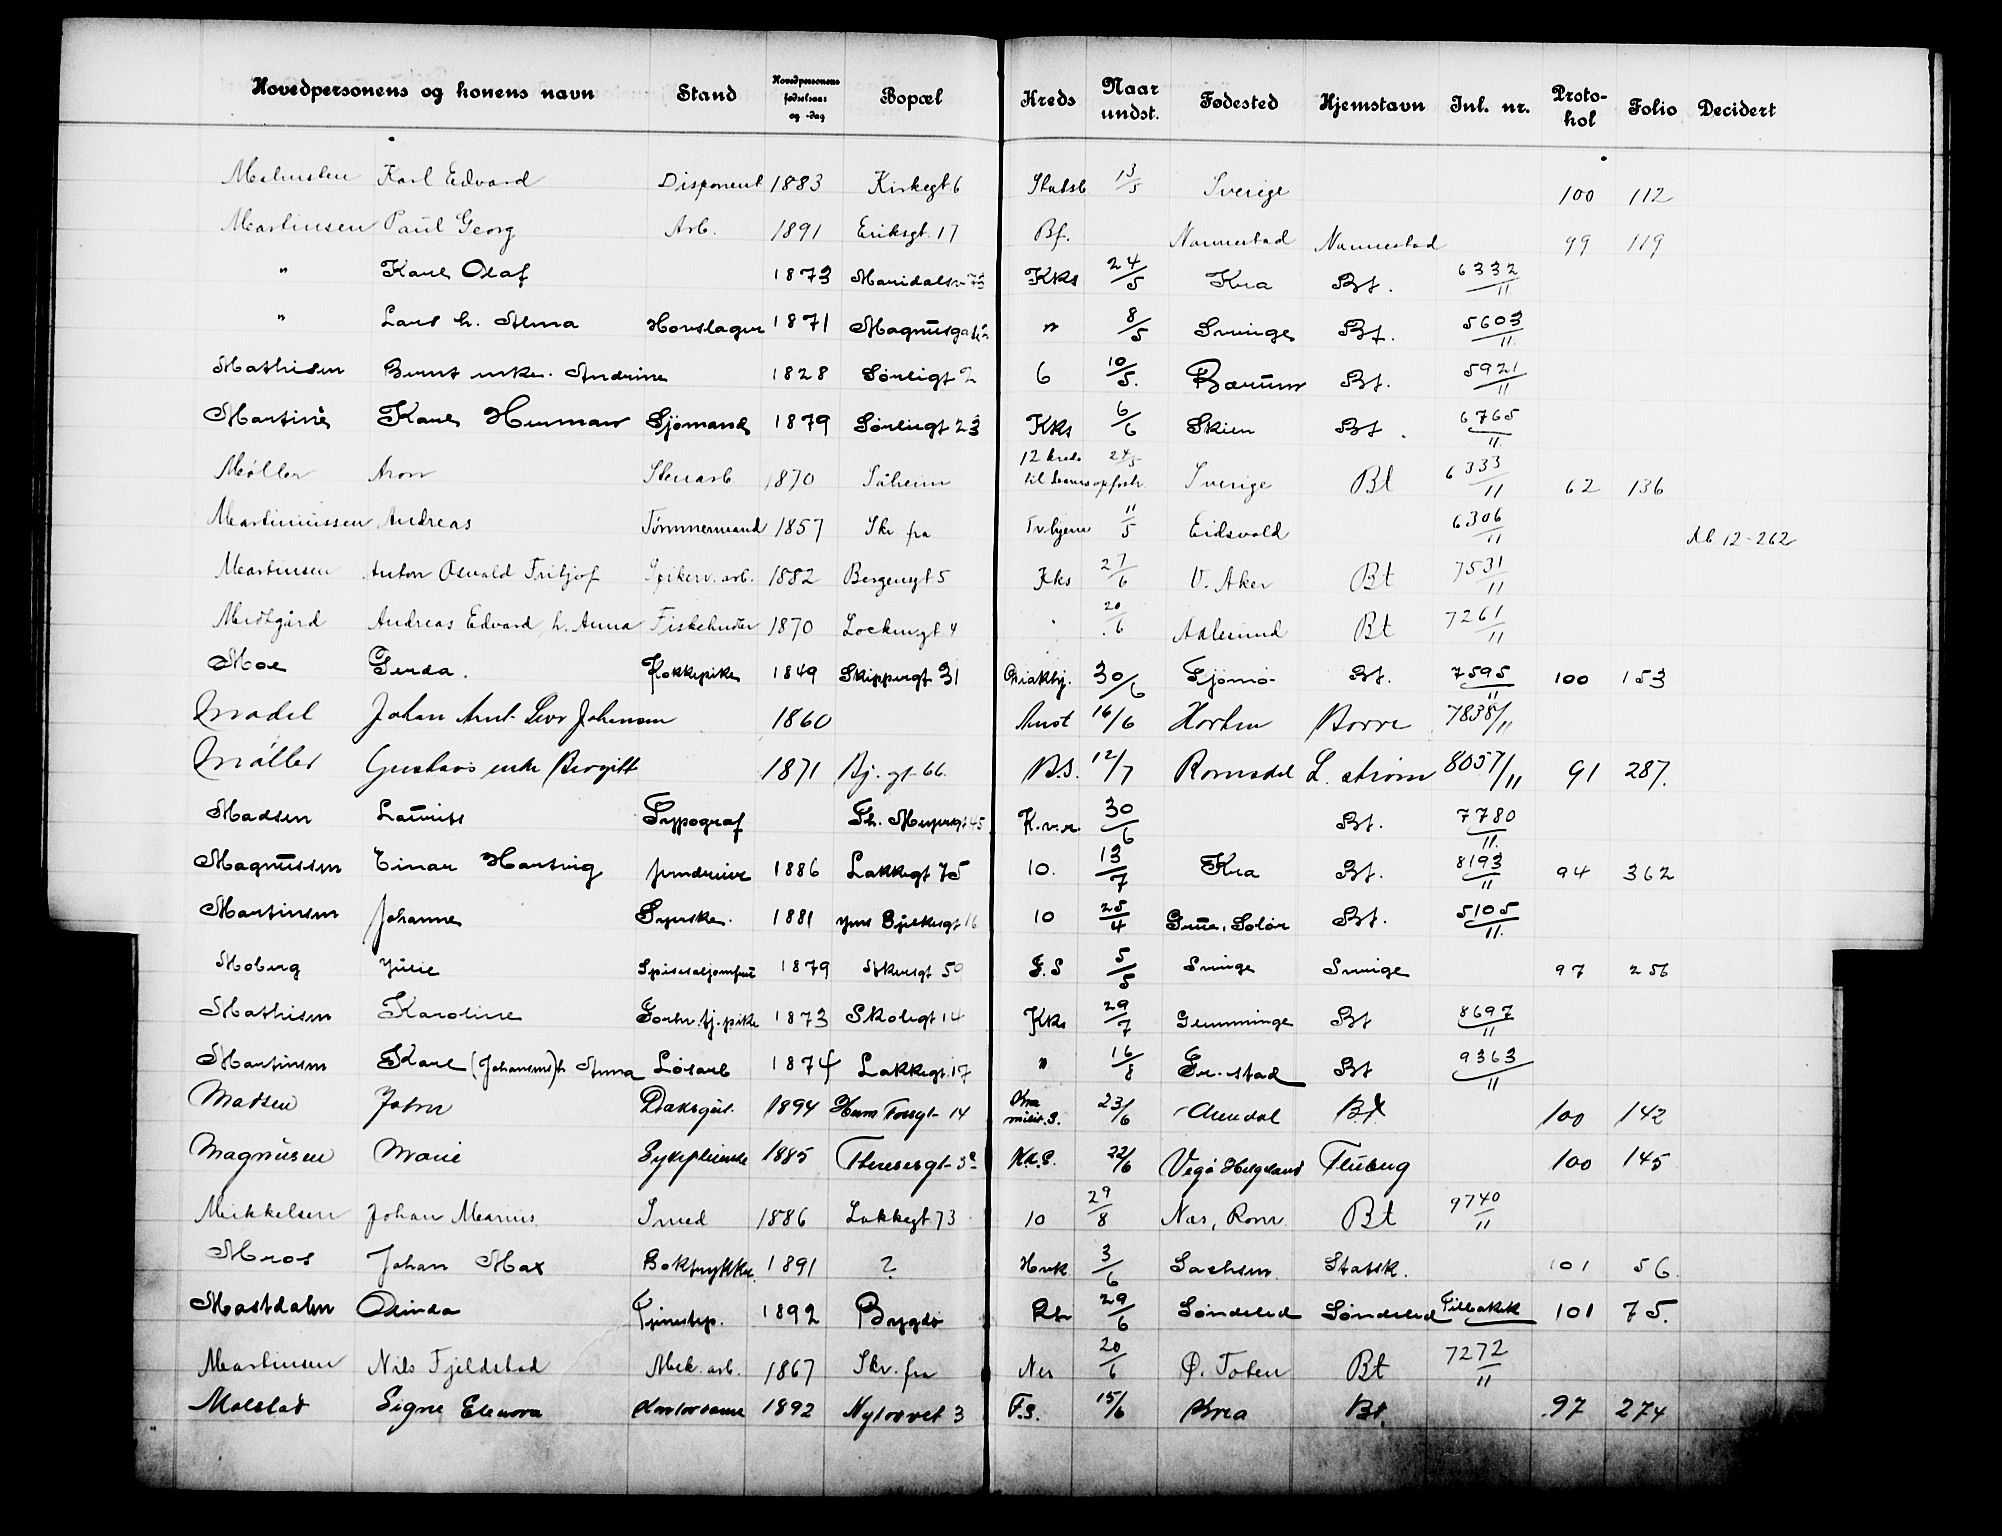 Hovedpersonens og konens navn Stand Hovedpersonens fødselsaar og -dag Bopæl Kreds Naar undst. Fødested Hjemstavn Inl. nr. Proto-kol Folio Decidert
Malmsten Karl Edvard Disponent 1883 Kirkegt 6 Statsb 13/5 Sverige 100 112
Martinsen Paul Georg Arb. 1891 Eriksgt. 17 Bf. Nannestad Nannestad 99 119
" Karl Olaf 1873 Maridalsv 73 Kks 24/5 Kra Bt. 6332/11
" Lars h. Alma Hovslager 1871 " 8/5 Sverige Bt. 5603/11
Mathisen Bernt enke. Andrine 1828 Sørligt 2 6 10/5. Bærum Bt. 5921/11
Martine Karl Herman Sjømand 1879 Sørligt 23 Kks 6/6 Skien Bt. 6765/11
Møller Aron Stenarb 1870 Såheim 12 kreds til 24/5 Sverige Bt 6333/11 62 136
Martiniussen Andreas Tømmermand 1857 Skr. fra Tv.hjem 11/5 Eidsvold 6306/11 Ab 12-262
Martinsen Anton Osvald Fritjof Spikerv. arb. 1882 Bergengt 5 Kks 27/6 V. Aker Bt 7531/11
Midtgård Andreas Edvard, h. Anna 1870 Lockengt 4 " 20/6 Aalesund Bt 7261/11
Moe Gerda. Kokkepike 1849 Skippergt 31 30/6 Gjømø Bt. 7595/11 100 153
Madel Johan 1860 Aust 16/6 Horten Borre 7838/11
Møller Gustavs enke Bergitt 1871 Bj. gt. 66 B.S. 12/7 Romsdal L. strøm 8057/11 91 287.
Madsen Laurits Typograf Th. Meyersgt 45 K.v.r 30/6 Bt. 7780/11
Magnussen Einar Hartvig 1886 Lakkegt 75 10. 13/7 Kra Bt. 8193/11 94 362
Martinsen Johanne Syerske. 1881 Jens Bjelkesgt 16 10 25/4 Grue, Solør Bt. 5105/11
Moberg Julie 1879 Akersgt 50 F.S 5/5 Sverige Sverige 97 256
Mathisen Karoline Forhv. tj. pike 1873 Skolegt 14 Kks 29/7 Gemminge Bt 8697/11
Martinsen Karl (Johansens) h Anna Løsarb 1874 Lakkegt. 17 " 16/8 Fr. stad Bt 9363/11
Madsen John 1894 14 Kra milit. S. 23/6 Arendal Bt. 100 142
Magnusen Marie Sykepleierske 1885 Theresesgt 22/6 Vegø Helgeland Fluberg 100 145
Mikkelsen Johan Marius Smed 1886 Lakkegt 73 10 29/8 Nes, Rom. Bt 9740/11
Mros Johan Max Boktrykker 1891 ? Hvk 3/6 Sachsen Statsk. 101 56
Mostdalen Olinda Tjenestep. 1892 Bygdø 29/6 Søndeled Søndeled Tilbakek 101 75.
Martinsen Nils Fjeldstad Mek. arb. 1867 Skr. fra Nes 20/6 Ø. Toten Bt 7272/11
Molstad Signe Eleonora Kontordame 1892 Nytorvet 3 F.S. 15/6 Kra Bt. 97 274